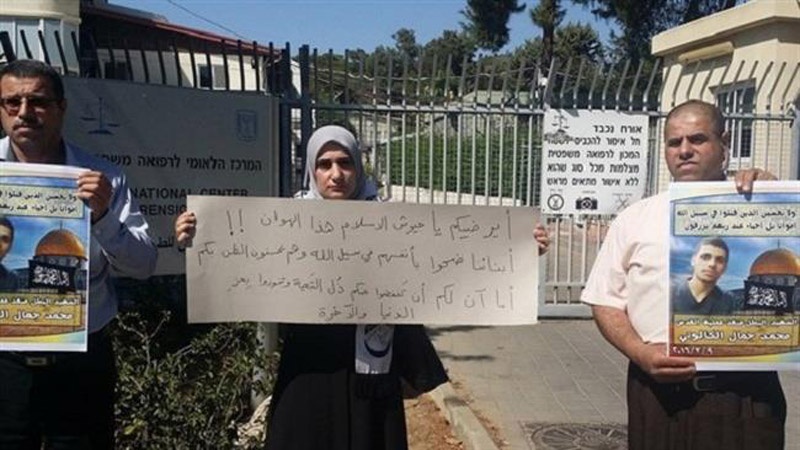 המרכז הלאומי לרפואה משפ
NATIONAL CENTER
אורח נכבד
חל איסור להכניס לשטח
המכון לרפואה משפטית
מצלמות מכל סוג שהוא
ללא אישור מתאים מראש
أيرضيكم يا جيوش الاسلام هذا الهوان !!
أبناؤنا ضحوا بأنفسهم في سبيل الله وهم يحسنون الظن بكم
أما آن لكم أن تنفضوا عنكم ذُل التبعية وتفوزوا بعز
الدنيا والآخرة
ولا تحسبن الذين قتلوا في
أمواتا بل أحياء عند ربهم
الشهيد البطل منفذ عملية
محمد جمال الكالوتي
ولا تحسبن الذين قتلوا في سبيل الله
أمواتا بل أحياء عند ربهم يرزقون
الشهيد البطل منفذ عملية القدس
محمد جمال الكالوتي
٢٠١٦/٢/٩